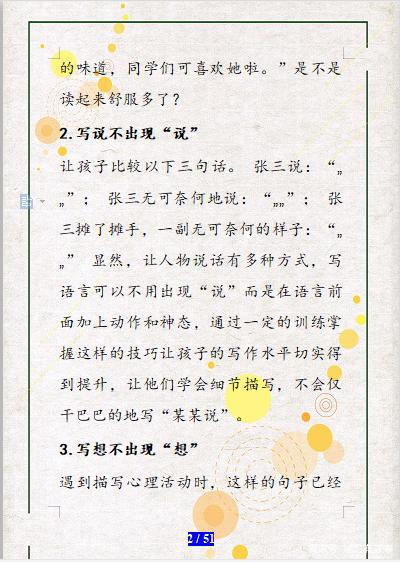 的味道，同学们可喜欢她啦。”是不是
读起来舒服多了？
2.写说不出现“说”
让孩子比较以下三句话。 张三说：“„
„”； 张三无可奈何地说：“„„”； 张
三摊了摊手，一副无可奈何的样子：“„
„” 显然，让人物说话有多种方式，写
语言可以不用出现“说”而是在语言前
面加上动作和神态，通过一定的训练掌
握这样的技巧让孩子的写作水平切实得
到提升，让他们学会细节描写，不会仅
干巴巴的地写“某某说”。
3.写想不出现“想”
遇到描写心理活动时，这样的句子已经
2 / 51